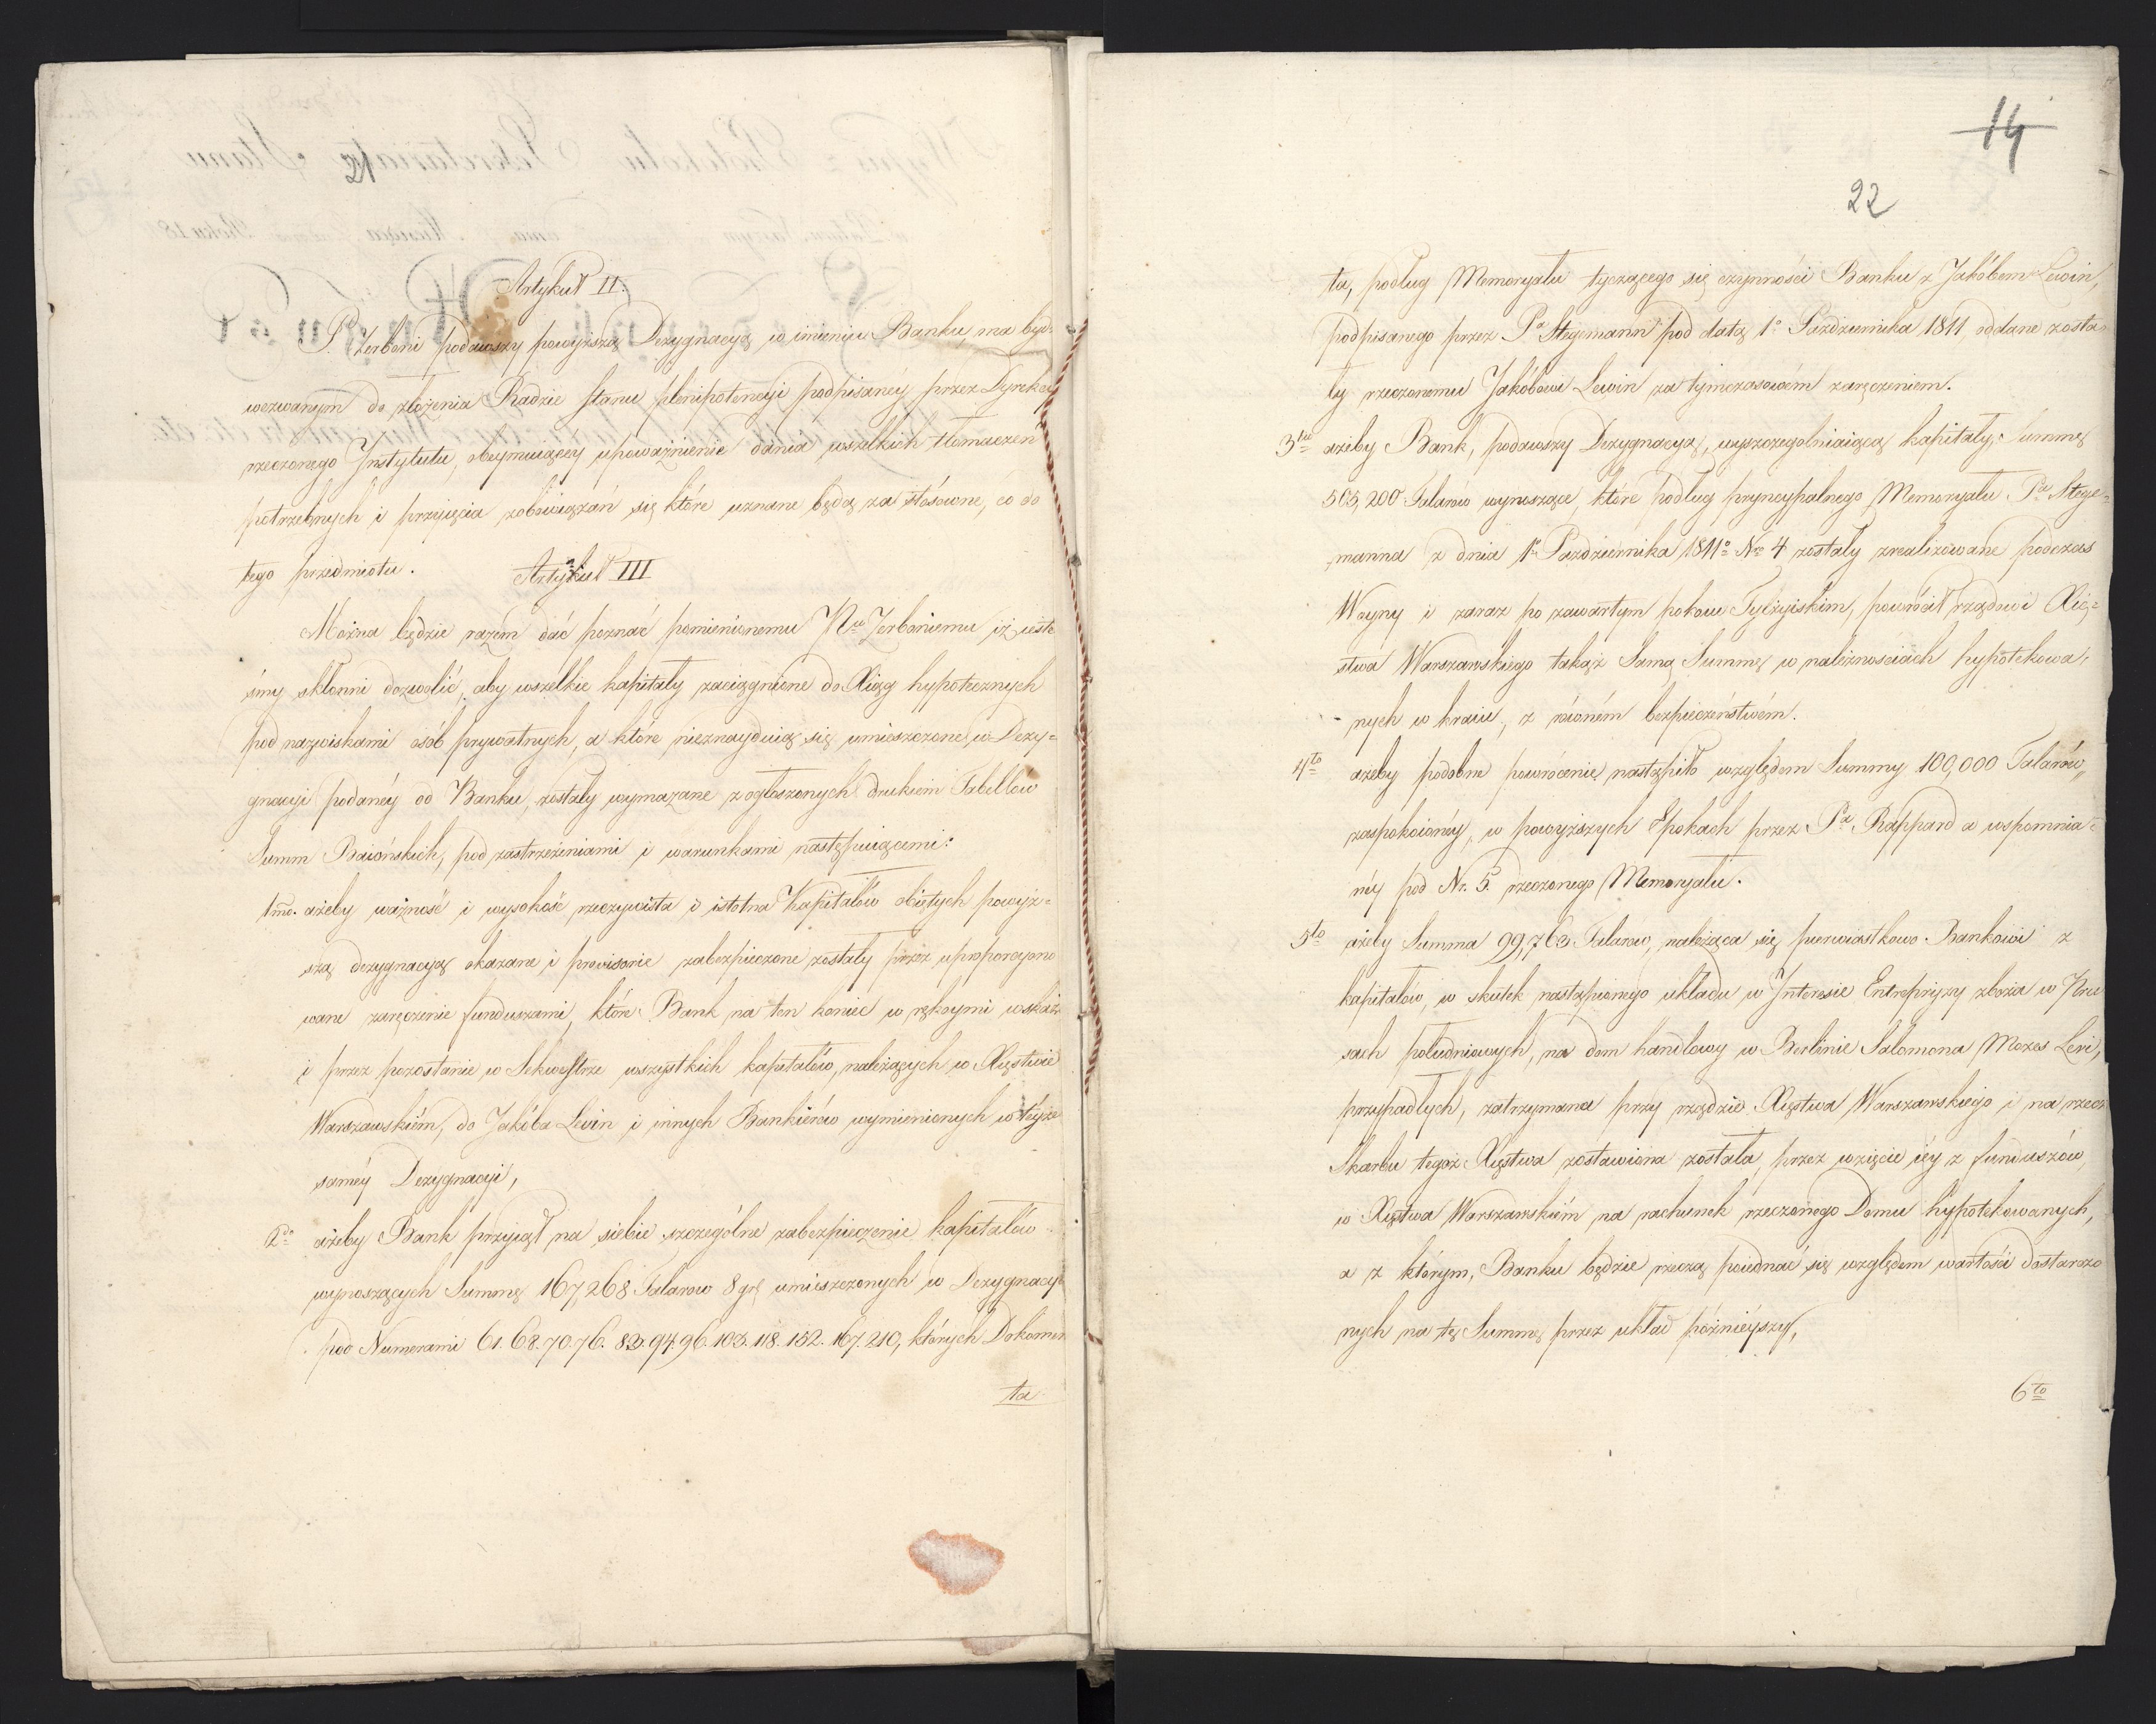 21
Artykuł II.
P. Zerboni podawszy powyższą Dezygnacyą w imieniu Banku, ma być
wezwanym do złożenia Radzie stanu plenipotencyi podpisanéy przez Dyrekcyą
rzeczonego Instytutu, obeymuiącéy upoważnienie dania wszelkich tłomaczeń
potrzebnych i przyięcia zobowiązań się które uznane będą za stósowne, co do
tego przedmiotu.
Artykuł III
Można będzie razem dać poznać pomienionemu Zerboniemu iż ieste
śmy skłonni dozwolić, aby wszelkie kapitały zaciągnione do Xiąg hypotecznych
pod nazwiskami osób prywatnych, a które nieznayduią się umieszczone w Dezy=
gnacyi podanéy od Banku, zostały wymazane z ogłoszonych drukiem Tabellów
Summ Baiońskich, pod zastrzeżeniami i warunkami następuiącemi:
1mo. ażeby ważność i wysokość rzeczywista i istotna Kapitałów obiętych powyż=
szą dezygnacyą okazana i provisorie zabezpieczone zostały przez uproporcyono
wane zaręczenie funduszami, które Bank na ten koniec w rękoymi wskaże
i przez pozostanie w Sekwestrze wszystkich kapitałów, należących w Xięstwie
Warszawskiém, do Jakóba Levin i innych Bankierów wymienionych w téyże
saméy Dezygnacyi,
2do ażeby Bank przyiął na siebie szczególne zabezpieczenie kapitałów
wynoszących Summę 167,268 Talarow 8 grę umieszczonych w Dezygnacyi
pod Numerami 61. 68. 70. 76. 83. 94. 96. 103. 118. 152. 167. 210, których Dokumen
ta
14
22
ta, podług Memoryału tyczącego się czynności Banku z Jakóbem Lewin,
podpisanego przez Pa Stegemann pod datą 1o Października 1811, oddane zosta
ły rzeczonemu Jakóbowi Lewin za tymczasowém zaręczeniem.
3tio ażeby Bank, podawszy Dezygnacyą, wyszczególniaiącą kapitały, Summę
503,200 Talarów wynoszące, które podług pryncypalnego Memoryału Pa Stege=
manna z dnia 1o Października 1811o Nro 4 zostały zrealizowane podczas
Woyny i zaraz po zawartym pokoiu Tylżyiskim, powrócił rządowi Xię=
stwa Warszawskiego takąż Samą Summę w należnościach hypotekowa=
nych w kraiu, z równém bezpieczeństwém.
4to ażeby podobne powrócenie nastąpiło względem Summy 100,000 Talarów,
zaspokoionéy, w powyższych Epokach przez Pa Rappard a wspomnia=
néy pod Nr. 5. rzeczonego Memoryału.
5to ażeby Summa 99,763 Talarów, należąca się pierwiastkowo Bankowi z
kapitałów, w skutek nastąpionego układu w Interesie Entrepryzy zboża w Pru
sach południowych, na dom handlowy w Berlinie Salomona Mozes Levi,
przypadłych, zatrzymana przy rządzie Xięstwa Warszawskiego i na rzecz
Skarbu tegoż Xięstwa zostawiona została, przez wzięcie iéy z funduszów,
w Xięstwa Warszawskiém na rachunek rzeczonego Domu hypotekowanych,
a z którym, Banku będzie rzeczą poiednać się względem wartości dostarczo
nych na tę Summę przez układ późnieyszy,
6to